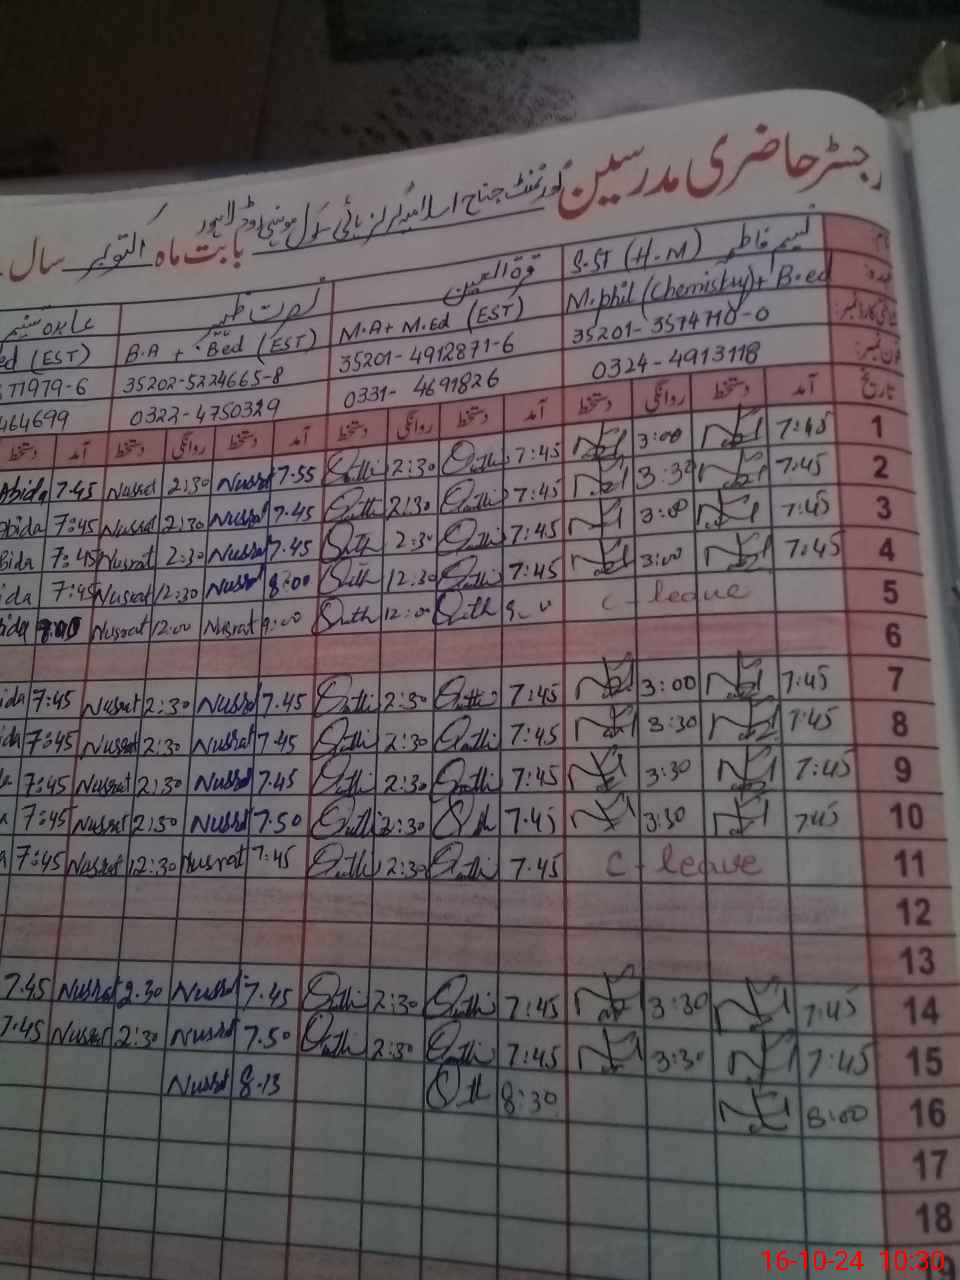 رجسٹر حاضری مدرسین گورنمنٹ جناح اسلامیہ گرلز ہائی سکول موہنی روڈ لاہور بابت ماہ اکتوبر سال
نام: نسیم فاطمہ قرۃ العین نصرت ظہیر
عہدہ: S.ST (H.M) M.A + M.Ed (EST) B.A + Bed (EST) ed (EST)
M.phil (Chemistry) + B.ed
35201-3574710-0 35201-4912871-6 35202-5224665-8 71979-6
0324-4913118 0331-4691826 0322-4750329 464699
تاریخ آمد دستخط روانگی دستخط آمد دستخط روانگی دستخط آمد دستخط روانگی دستخط آمد دستخط
1 7:45 3:00 7:45 2:30 7:55 Nusrat 2:30 Nusrat 7.45 Abida
2 7:45 3:30 7:45 2:30 7.45 Nusrat 2:30 Nusrat 7:45 Abida
3 7:45 3:00 7:45 2:30 7.45 Nusrat 2:30 Nusrat 7:45 Bida
4 7:45 3:00 7:45 12:30 8:00 Nusrat 12:30 Nusrat 7:45 ida
5 C-leave 12:00 9:00 Nusrat 12:00 Nusrat ida
6
7 7:45 3:00 7:45 2:30 7.45 Nusrat 2:30 Nusrat 7:45 ida
8 7:45 3:30 7:45 2:30 7.45 Nusrat 2:30 Nusrat 7:45 ida
9 7:45 3:30 7:45 2:30 7.45 Nusrat 2:30 Nusrat 7:45 a
10 7:45 3:30 7.45 2:30 7.50 Nusrat 2:30 Nusrat 7:45 a
11 C-leave 7.45 12:30 7.45 Nusrat 12:30 Nusrat 7:45 a
12
13
14 7:45 3:30 7:45 2:30 7.45 Nusrat 2.30 Nusrat 7.45
15 7:45 3:30 7:45 2:30 7.50 Nusrat 2:30 Nusrat 7.45
16 8:00 8:30 8.13 Nusrat
17
18
16-10-24 10:30